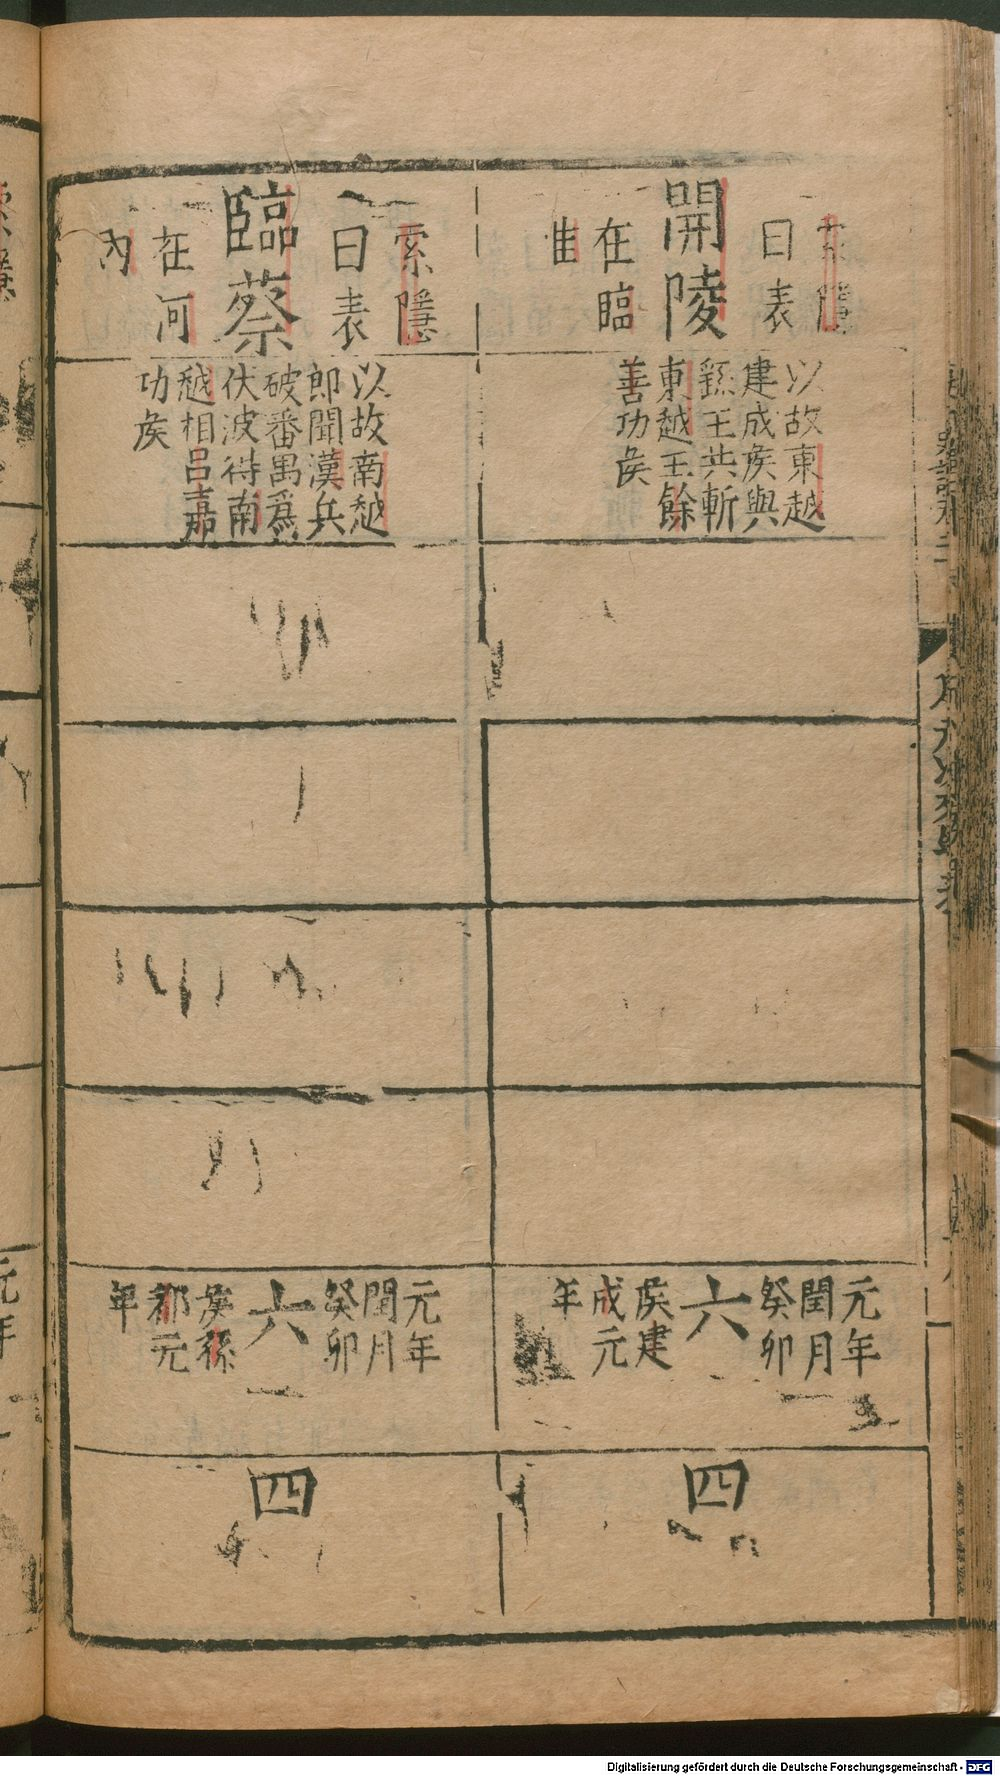 索隱
曰表
開陵
在臨
淮
以故東越
建成矦與
繇王共斬
東越王餘
善功矦
元年
閏月
癸卯
六
矦建
成元
年
四
索隱
曰表
臨蔡
在河
內
以故南越
郎聞漢兵
破番禺爲
伏波得南
越相呂嘉
功矦
元年
閏月
癸卯
六
矦孫
都元
年
四
Digitalisierung gefördert durch die Deutsche Forschungsgemeinschaft - DFG